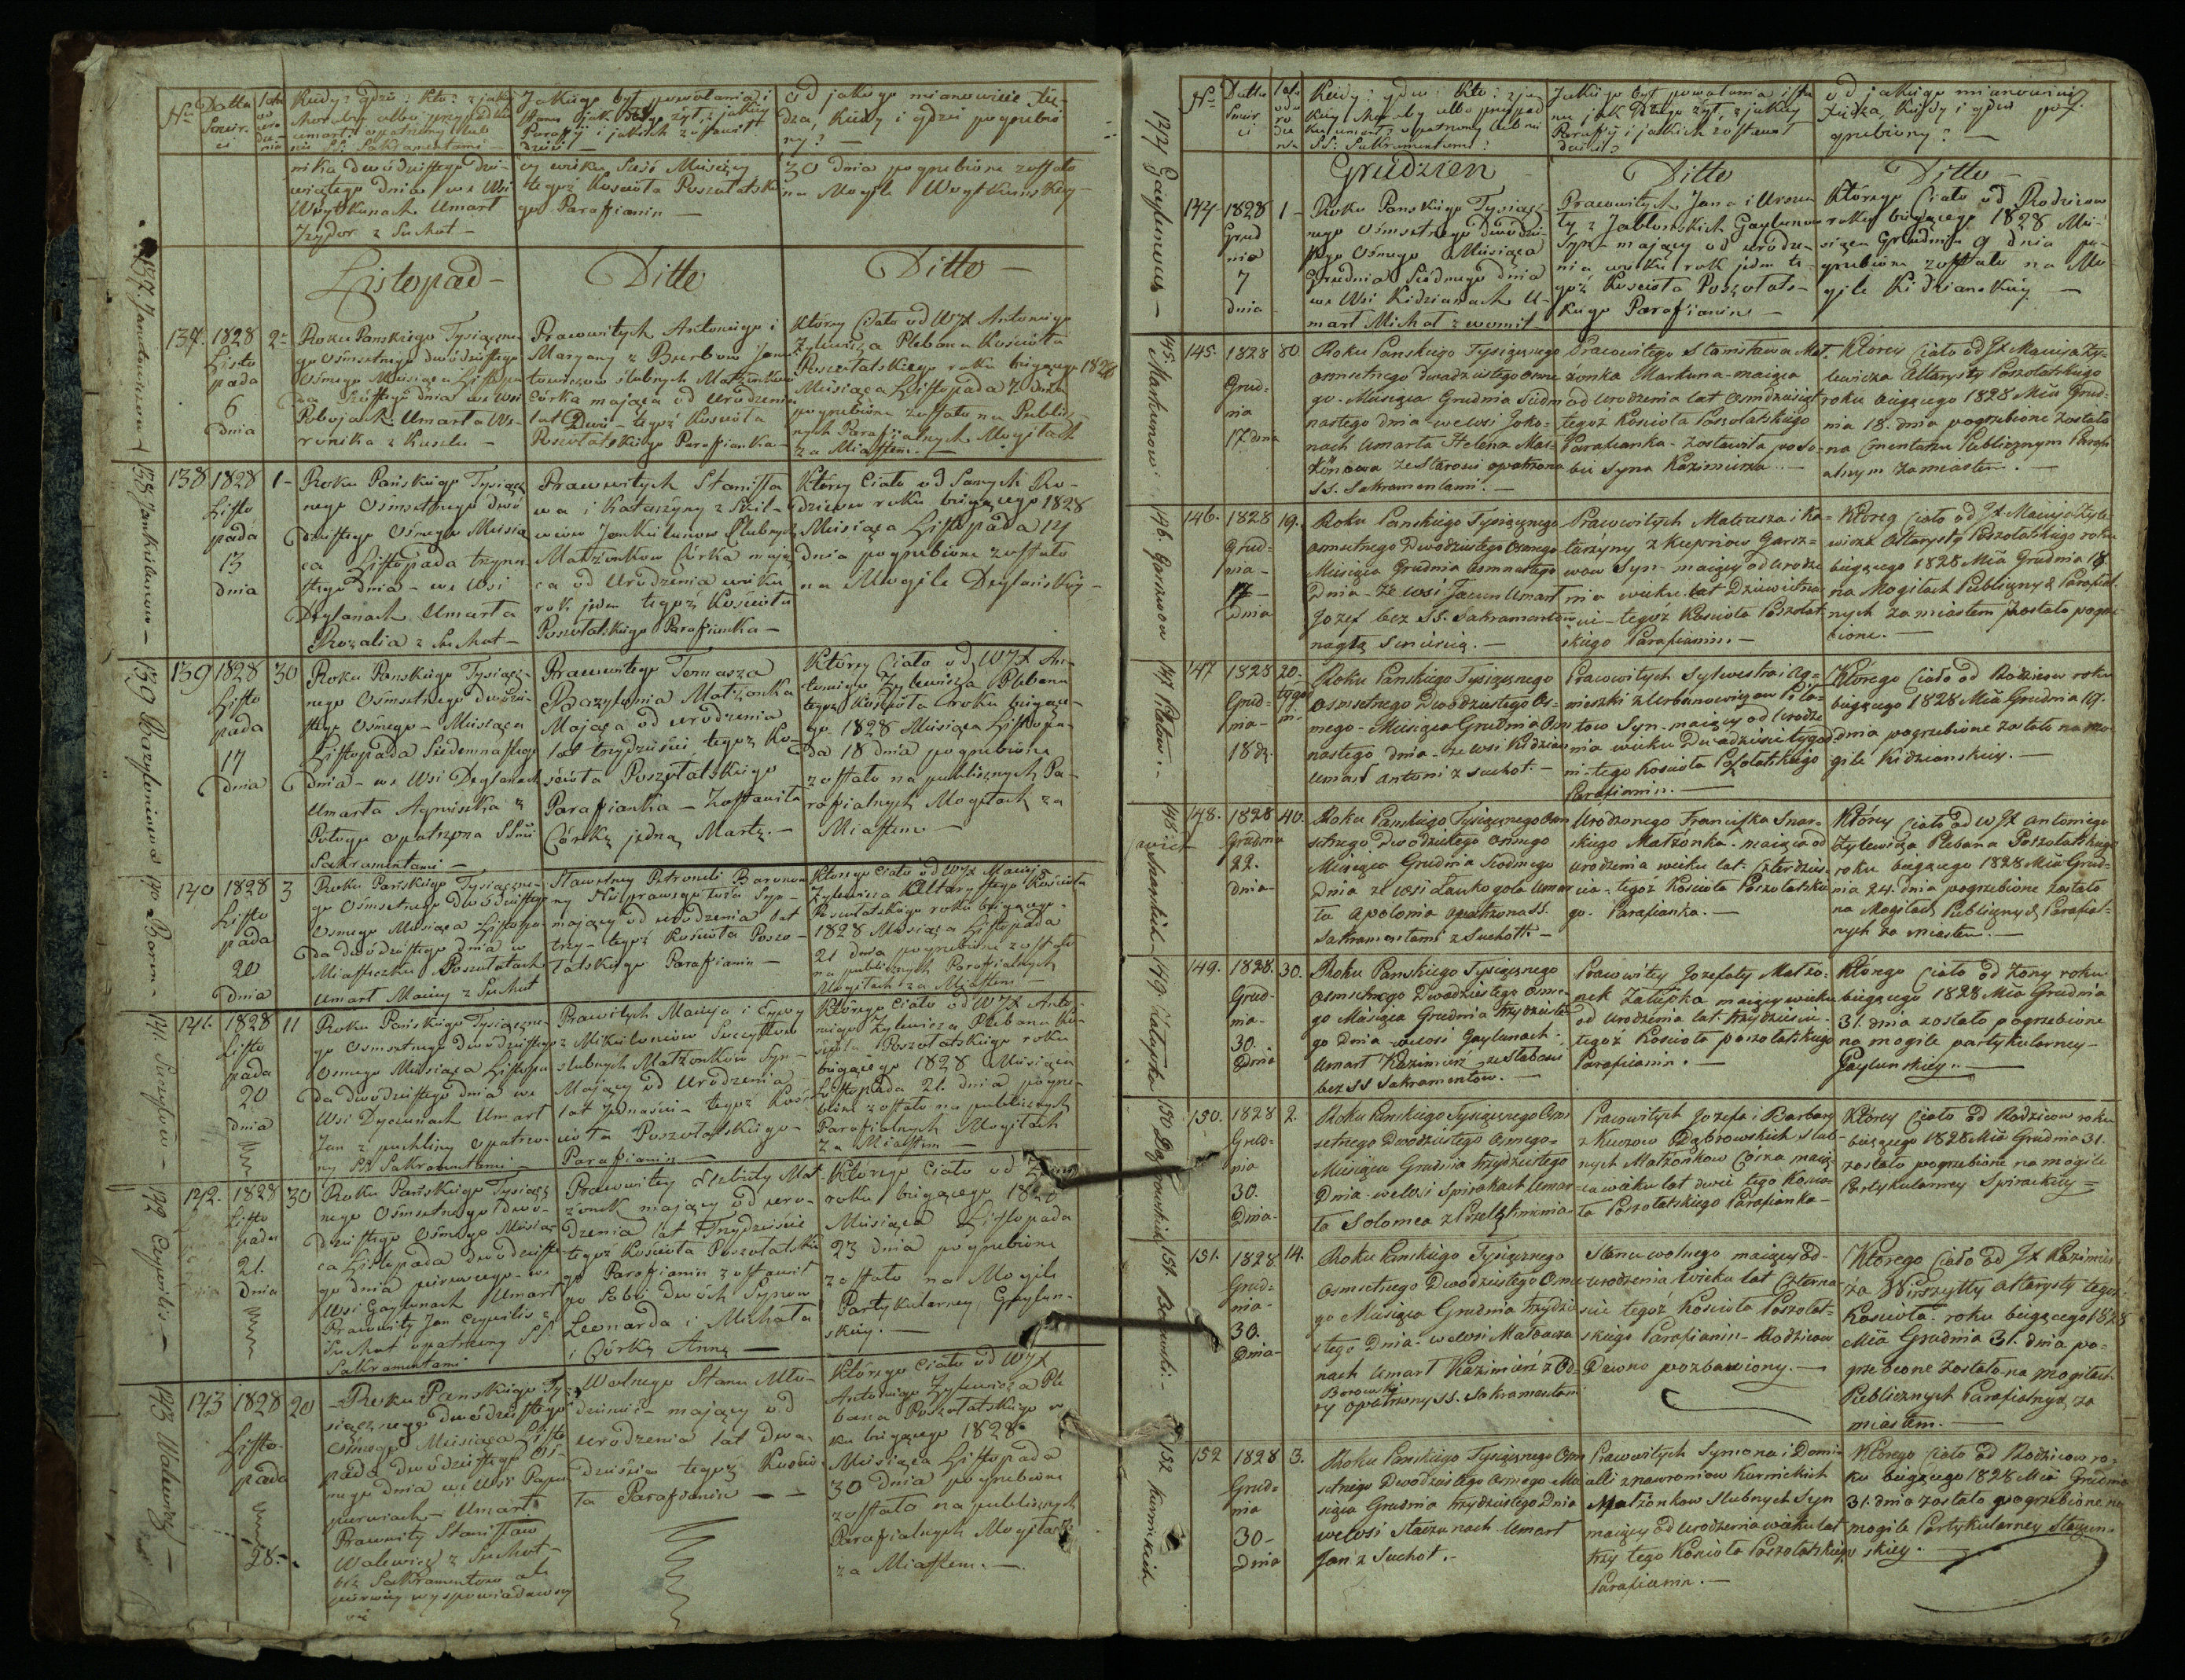 Nro
Datta Smierci
lata od urodzenia
Kiedy? gdzie? Kto? z jakiey
choroby albo przypadku
umarł? opatrzony lub
nie SS: Sakramentami
Jakiego był powołania i
Stanu jak długo żył, z jakiey
Parafij i jakich zostawił
dzieci
od jakiego mianowicie Xię-
dza, Kiedy i gdzie pogrzebio-
ny? —
nika dwódziestego dzie-
wiątego dnia we Wsi
Woytkunach Umarł
Jzydor z Suchot —
cy wieku Sześć Miesięcy
tegoż Kościoła Poszołatskie-
go Parafianin —
30 dnia pogrzebione zostało
na Mogile Woytkunskiey —
Listopad — Ditto Ditto —
137. Jontowiczowa
137. 1828
Listo
pada
6
dnia
2
Roku Panskiego Tysiączne-
go Osmsetnego dwódziestego
Osmego Miesiąca Listopa
da Szóstego dnia we Wsi
Pobojach Umarła We-
ronika z Kaszlu —
Prawowitych Antoniego i
Maryany z Burbow Jon-
towiczow slubnych Małżonkow
Córka mająca od Urodzenia
lat Dwó — tegoż Kościoła
Poszołatskiego Parafianka —
Którey Ciało od WJX Antoniego
Zylewicza Plebana Kościoła
Poszołatskiego roku biegącego 1828
Miesiąca Listopada 7 dnia
pogrzebione zostało na Public
nych Parafialnych Mogiłach
za Miastem. —
138 Jankielunow —
138 1828
Listo
pada
13
dnia
1 —
Roku Pańskiego Tysiącz
nego Osmsetnego dwó
dziestego Osmego Miesią
ca Listopada trzyna
stego dnia — we Wsi
Deglanach Umarła
Rozalia z Suchot —
Prawowitych Stanisła
wa i Katarzyny z
Slubnych
Małżonkow Córka mają
ca od Urodzenia wieku
rok jeden tegoż Kościoła
Poszołatskiego Parafianka —
Którey Ciało od Samych Ro-
dziców roku biegącego 1828
Miesiąca Listopada 14
dnia pogrzebione zostało
na Mogile Deglańskiey —
139 Bazyloniowa
139 1828
Listo
pada
17
dnia
30
Roku Panskiego Tysiącz-
nego Osmsetnego dwódzie-
stego Osmego — Miesiąca
Listopada Siedemnastego
dnia — we Wsi Deglanach
Umarła Agnieszka z
Połogu opatrzona SSmi
Sakramentami —
Prawowitego Tomasza
Bazylonia Małżonka
Mająca od Urodzenia
lat trzydzieści tegoż Ko-
ścioła Poszołatskiego
Parafianka — Zostawiła
Córkę jedną Martę. —
Którey Ciało od WJX An-
toniego Zylewicza Plebana
tegoż Kościoła roku biegące-
go 1828 Miesiąca Listopa-
da 18 dnia pogrzebione
zostało na publicznych Pa-
rafialnych Mogiłach za
Miastem —
140 Baron —
140 1828
Listo
pada
20
dnia
3
Roku Pańskiego Tysiączne-
go Osmsetnego dwódziestego
Osmego Miesiąca Listopa-
da dwódziestego dnia w
Miasteczku Poszołatach
Umarł Maciey z Suchot
Sławetney Petroneli Baronow
ny Nieprawego łoża Syn —
mający od urodzenia lat
trzy — tegoż Kościoła Poszo-
łatskiego Parafianin —
Którego Ciało od WJX Macieja
Zylewicza Altarysty tego Kościoła
Poszołatskiego roku biegącego
1828 Miesiąca Listopada
21 dnia pogrzebione zostało
na publicznych Parafialnych
Mogiłach za Miastem —
141.
141. 1828
Listo
pada
20
dnia
11
Roku Pańskiego Tysiączne-
go Osmsetnego dwódziestego
Osmego Miesiąca Listopa
da dwódziestego dnia we
Wsi Umarł
Jan z puchliny opatrzo-
ny SS Sakramentami —
Prawitych Macieja i Ewy
z Mikulonców
slubnych Małżonków Syn —
Mający od Urodzenia
lat Jednaście — tegoż Koś-
cioła Poszołatskiego —
Parafianin —
Którego Ciało od WJX Anto-
niego Zylewicza Plebana Ko-
ścioła Poszołatskiego roku
biegącego 1828 Miesiąca
Listopada 21. dnia pogrze-
bione zostało na publicznych
Parafialnych Mogiłach
za Miastem —
142 Czywilis. —
142. 1828
Listo
pada
21.
dnia
30
Roku Pańskiego Tysiącz
nego Osmsetnego dwó-
dziestego Osmego Miesią
ca Listopada dwódzieste-
go dnia pierwszego — we
Wsi Gaylunach Umarł
Prawowity Jan Czywilis z
Suchot opatrzony SS.
Sakramentami
Prawowitey Elzbiety Mał-
żonek mający od uro-
dzenia lat Trzydzieście
tegoż Kościoła Poszołatskie
go Parafianin zostawił
po Sobie dwóch Synow
Leonarda i Michała
i Córkę Annę —
Którego Ciało od Żony
roku biegącego 1828
Miesiąca Listopada
23 dnia pogrzebione
zostało na Mogile
Partykularney Gaylun-
skiey. —
143 Walewicz —
143 1828
Listo-
pada
28.
20
— Roku Pańskiego Ty-
siącznego dwódziestego
Osmego Miesiąca Listo
pada dwódziestego Os-
mego dnia we Wsi
Umarł
Prawowity Stanisław
Walewicz z Suchot —
bez Sakramentow ale
pierwiey wyspowiadawszy
sie
Wolnego Stanu Mło-
dzieniec — mający od
urodzenia lat dwa-
dzieście tegoż Kościo-
ła Parafianin —
Którego Ciało od WJX
Antoniego Zylewicza Ple
bana Poszołatskiego ro
ku biegącego 1828
Miesiąca Listopada
30 dnia pogrzebione
zostało na publicznych
Parafialnych Mogiłach
za Miastem. —
Nro
Datta Smierci
lata od urodzenia
Kiedy? gdzie? Kto? z ja-
kiey choroby albo przypad
ku umarł? opatrzony lub nie
SS: Sakramentami?
Jakiego był powołania i sta
nu jak długo żył, z jakiey
Parafij i jakich zostawił
dzieci?
od jakiego mianowicie
Xiędza, Kiedy i gdzie po-
grzebiony? —
Grudzien Ditto Ditto —
144 Gaylunowicz —
144 1828
Grud
nia
7
dnia
1 —
Roku Panskiego Tysiącz-
nego Osmsetnego dwódzie-
stego Osmego Miesiąca
Grudnia Siódmego dnia
we Wsi Kidzianach U-
marł Michał z womit —
Prawowitych Jana i Urszu
li z Jabłonskich Gaylunow
Syn — mający od urodze-
nia wieku rok jeden te-
goż Kościoła Poszołats-
kiego Parafianin —
Którego Ciało od Rodzicow
roku biegącego 1828 Mie-
siąca Grudnia 9 dnia po-
grzebione zostało na Mo-
gile Kidzianskiey —
145. Markunowa.
145. 1828
Grud-
nia
17 dnia
80
Roku Panskiego Tysiącznego
osmsetnego dwadziestego osme
go. Miesiąca Grudnia Siedm
nastego dnia we wsi Joko-
nach umarła Helena Mar-
kunowa ze Starosci opatrzona
SS. Sakramentami. —
Prawowitego Stanisława Mał-
żonka Markuna — maiąca
od urodzenia lat osmdziesiąt
tegoż Kościoła Poszołatskiego
Parafianka — zostawiła po so-
bie Syna Kazimierza. —
Którey Ciało od JX Macieja Zy-
lewicza Altarysty Poszołatskiego
roku biegącego 1828 Mca Grud-
nia 18. dnia pogrzebione zostało
na Cmentarzu Publicznym Parafi
alnym za miastem. —
146. Garszwow
146. 1828
Grud-
nia —
17 —
Dnia
19.
Roku Panskiego Tysiącznego
osmsetnego Dwodziestego osmego
Miesiąca Grudnia osmnastego
Dnia — ze wsi umarł
Jozef bez SS. Sakramentow
nagłą smiercią. —
Prawowitych Mateusza i Ka-
tarzyny z Kuprisow Garsz-
wow Syn — maiący od urodze
nia wieku lat Dziewietna-
scie — tegoż Kościoła Poszołat-
skiego Parafianin. —
Którego Ciało od JX Macieja Zyle
wicza Altarysty Poszołatskiego roku
biegącego 1828 Mca Grudnia 18
na Mogiłach Publicznych Parafial-
nych za miastem zostało pogrze-
bione. —
147 Piłatow. —
147 1828
Grud-
nia —
18 d.
20.
tygod
n.
Roku Panskiego Tysiącznego
osmsetnego Dwodziestego Os-
mego — Miesiąca Grudnia Osm
nastego dnia — ze wsi Kidzian
umarł Antoni z suchot. —
Prawowitych Sylwestra i Ag-
nieszki z Urbanowiczow Piła-
tow Syn — maiący od urodze
nia wieku Dwadziescie tygod
ni — tego Kościoła Poszołatskiego
Parafianin. —
Którego Ciało od Rodzicow roku
biegącego 1828 Mca Grudnia 19.
dnia pogrzebione zostało na mo-
gile Kidzianskiey. —
148 Snarskich —
148. 1828
Grudnia
22.
dnia —
40.
Roku Panskiego Tysiącznego Osm
setnego Dwodziestego osmego
Miesiąca Grudnia
dnia ze wsi umar
ła Apolonia opatrzona SS.
Sakramentami z Suchott —
Urodzonego Franciszka Snar-
skiego Małżonka — maiąca od
urodzenia wieku lat Czterdzie-
scie — tegoż Kościoła Poszołatskie
go — Parafianka. —
Którey Ciało od WJX Antoniego
Zylewicza Plebana Poszołatskiego
roku biegącego 1828 Mca Grud-
nia 24. dnia pogrzebione zostało
na Mogiłach Publicznych Parafial-
nych za miastem. —
149. Załupka
149. 1828.
Grud-
nia —
30.
Dnia
30.
Roku Panskiego Tysiącznego
Osmsetnego Dwodziestego Osme-
go Miesiąca Grudnia trzydzieste
go dnia we wsi Gaylunach
umarł Kazimierz — ze słabosci
bez SS Sakramentow. —
Prawowitey Jozefaty Małżo-
nek Załupka maiący wieku
od urodzenia lat trzydziescie
tegoż Kościoła poszołatskiego
Parafianin. —
Którego Ciało od Żony roku
biegącego 1828 Mca Grudnia
31. dnia zostało pogrzebione
na mogile partykularney —
Gaylunskiey. —
150 Dąbrowskich
150. 1828
Grud-
nia
30.
Dnia —
2.
Roku Panskiego Tysiącznego Osm
setnego Dwodziestego Osmego —
Miesiąca Grudnia trzydziestego
Dnia — we wsi Spirakach umar-
ła Solomea z
Prawowitych Jozefa i Barbary
z Kuczow Dąbrowskich slub-
nych Małżonkow Corka maią-
ca wieku lat dwie tego Kościo-
ła Poszołatskiego Parafianka —
Którey Ciało od Rodzicow roku
biegącego 1828 Mca Grudnia 31.
zostało pogrzebione na mogile
Partykularney Spirackiey =
151. Borowski. —
151. 1828
Grud-
nia —
30.
Dnia —
14.
Roku Panskiego Tysiącznego
Osmsetnego Dwodziestego Osme
go Miesiąca Grudnia trzydzie
stego Dnia — we wsi
nach umarł Kazimierz z Od-
Borowski
ry opatrzony SS. Sakramentami
Stanu wolnego maiący od —
urodzenia wieku lat Czterna-
scie tegoż Kościoła Poszołat-
skiego Parafianin — Rodzicow
Dawno pozbawiony. —
Którego Ciało od JX Kazimie-
rza Altarysty tegoż
Kościoła — roku biegącego 1828
Mca Grudnia 31. dnia po-
grzebione zostało na mogiłach
Publicznych Parafialnych za
miastem. —
152 Kurnickich
152 1828
Grud-
nia
30 —
Dnia
3.
Roku Panskiego Tysiącznego Osm
setnego Dwodziestego Osmego Mie
siąca Grudnia trzydziestego Dnia
we wsi Staczunach umarł
Jan z Suchot. —
Prawowitych Symona i Domi-
celli z Kurnickich
Małżonkow Slubnych Syn
maiący od urodzenia wieku lat
trzy tego Kościoła Poszołatskiego
Parafianin. —
Którego Ciało od Rodzicow ro-
ku biegącego 1828 Mca Grudnia
31. dnia zostało pogrzebione na
mogile Partykularney Staczun-
skiey. —